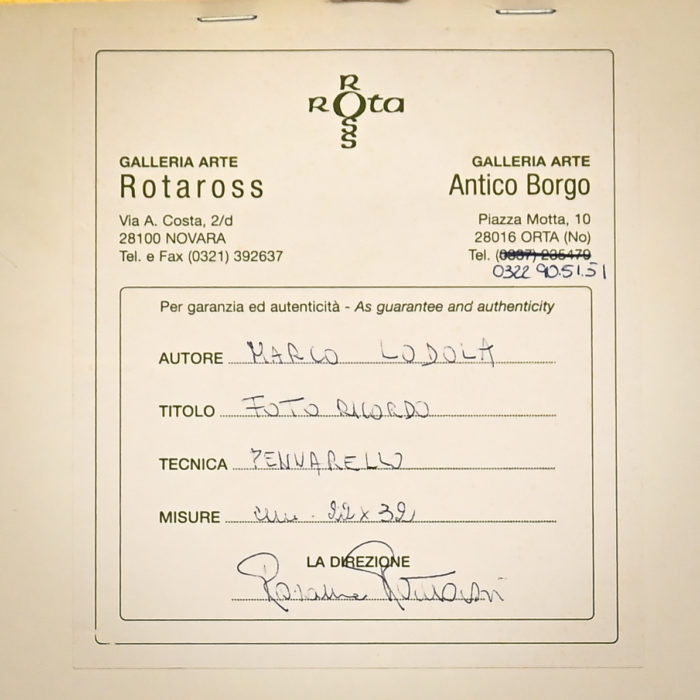 ROta
ROSS
GALLERIA ARTE
Rotaross
Via A. Costa, 2/d
28100 NOVARA
Tel. e Fax (0321) 392637
GALLERIA ARTE
Antico Borgo
Piazza Motta, 10
28016 ORTA (No)
Tel. (0337) 235479
0322 90.51.51
Per garanzia ed autenticità - As guarantee and authenticity
AUTORE MARCO LODOLA
TITOLO FOTO RICORDO
TECNICA PENNARELLO
MISURE cm. 22x32
LA DIREZIONE